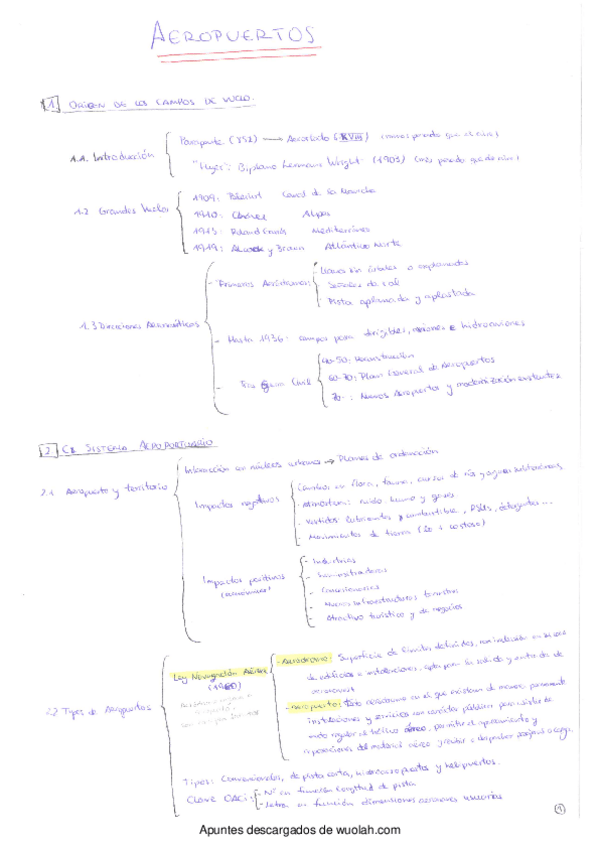 AEROPUERTOS
1 ORIGEN DE LOS CAMPOS DE VUELO.
1.1. Introducción
Parapente (852) → Aerostado (XVIII) (menos pesado que el aire)
"Flyer": Biplano hermanos Wright (1903) (más pesado que el aire)
1.2 Grandes Vuelos
1909: Blériot Canal de la Mancha
1910: Chávez Alpes
1913: Roland Garros Mediterráneo
1919: Alcock y Brown Atlántico Norte
1.3 Direcciones Aeronáuticas
- Primeros Aeródromos:
- Llanos sin árboles o explanadas
- Señales de cal
- Pista aplanada y aplastada
- Hasta 1936: campos para dirigibles, aviones e hidroaviones
- Tras Guerra Civil
40-50: Reconstrucción
60-70: Plan General de Aeropuertos
70- : Nuevos Aeropuertos y modernización existentes
2. EL SISTEMA AEROPORTUARIO
2.1 Aeropuerto y territorio
Interacción con núcleos urbanos → Planes de ordenación
Impactos negativos
- Cambios en flora, fauna, cursos de río y aguas subterráneas,
- Atmósfera: ruido, humo y gases
- Vertidos: lubricantes y combustible, detergentes...
- Movimientos de tierra (lo + costoso)
Impactos positivos
(económicos)
- Industrias
- Suministradoras
- Concesionarios
- Nuevas infraestructuras terrestres
- Atractivo turístico y de negocios
2.2 Tipos de Aeropuertos
Ley Navegación Aérea
(1960)
- Aeródromo: Superficie de límites definidos, con inclusión en su caso
de edificios e instalaciones, apta para la salida y entrada de
aeronaves
- Aeropuerto: Todo aeródromo en el que existan de manera permanente
instalaciones y servicios con carácter público para asistir de
modo regular al tráfico aéreo, permitir el aparcamiento y
reparaciones del material aéreo y recibir o despachar pasajeros o carga.
Tipos: Convencionales, de pista corta, hidroaeropuertos y helipuertos.
Clave OACI:
- Nº en función longitud de pista
- Letra en función dimensiones aeronaves usuarias
1
Apuntes descargados de wuolah.com